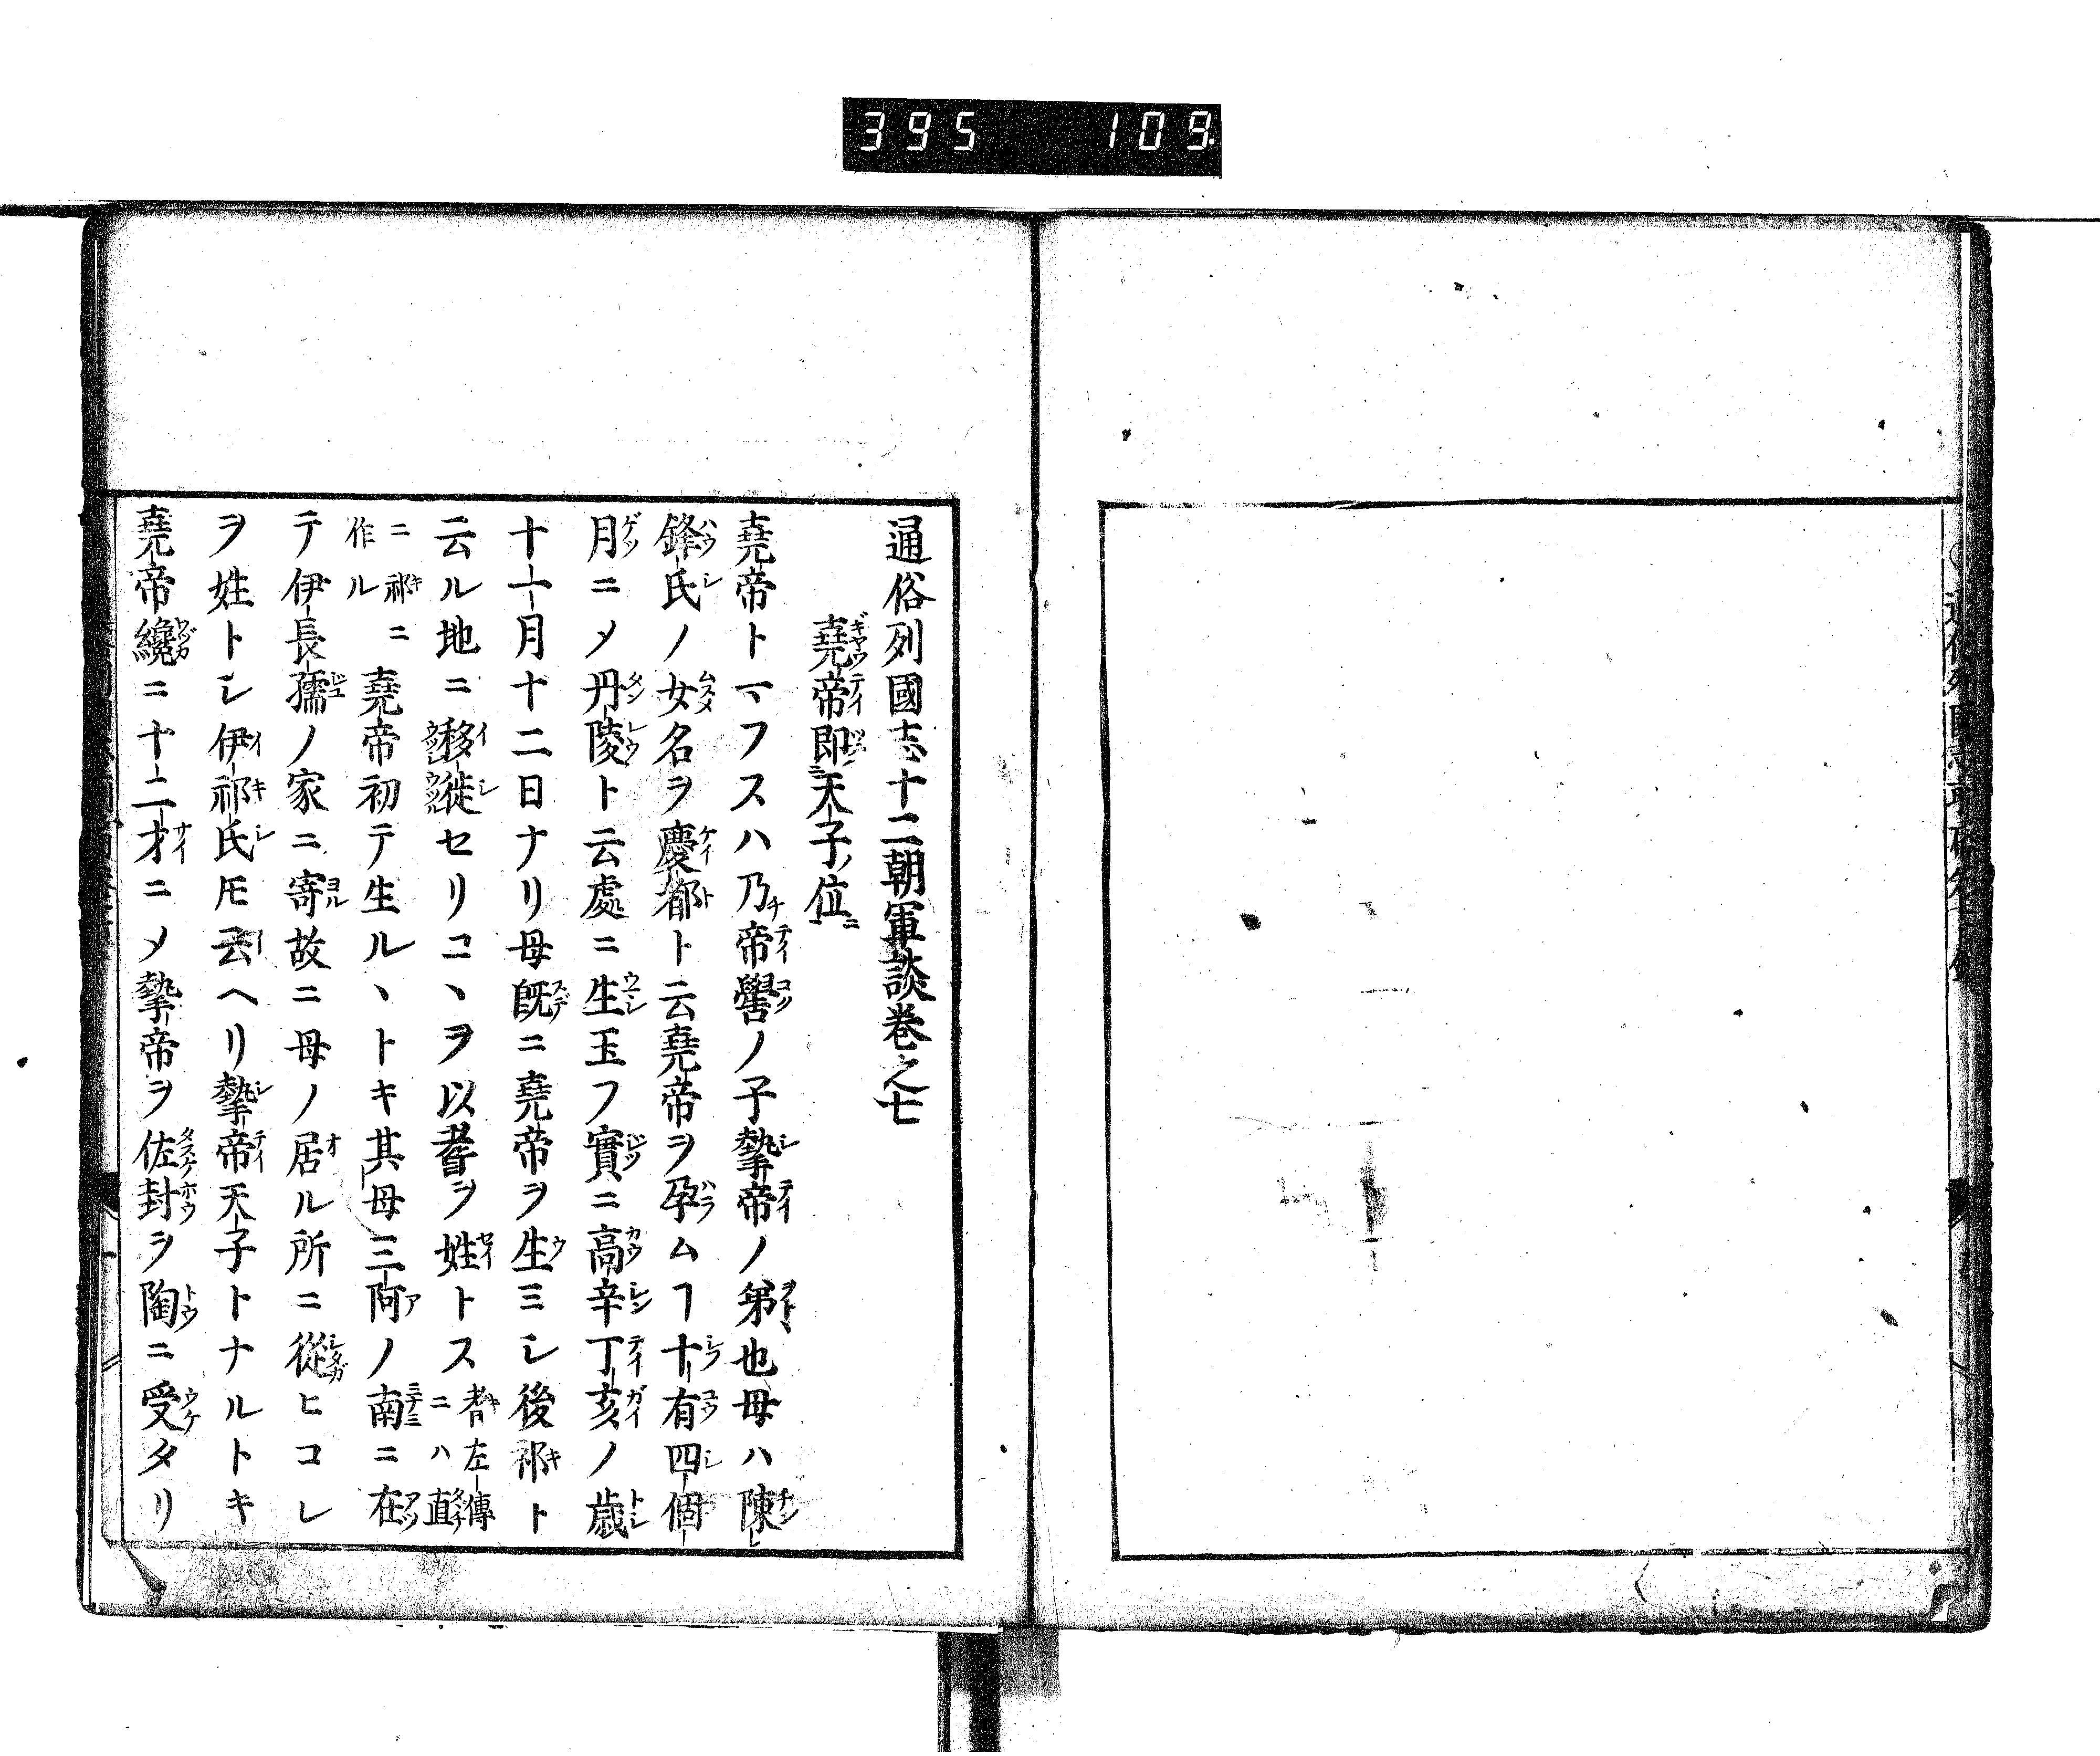 395 109
通俗列國志十二朝軍談巻之七
堯帝即天子位
堯帝トマフスハ乃帝嚳ノ子摯帝ノ弟也母ハ陳
鋒氏ノ女名ヲ慶都ト云堯帝ヲ孕ムヿ十有四個
月ニメ丹陵ト云處ニ生玉フ實ニ高辛丁亥ノ歳
十一月十二日ナリ母既ニ堯帝ヲ生ミレ後祁ト
云ル地ニ移徙セリコヽヲ以耆ヲ姓トス耆左傳ニハ直
ニ祁ニ作ル堯帝初テ生ルヽトキ其母三阿ノ南ニ在
テ伊長孺ノ家ニ寄故ニ母ノ居ル所ニ從ヒコレ
ヲ姓トレ伊祁氏𪜈云ヘリ摯帝天子トナルトキ
堯帝纔ニ十二才ニメ摯帝ヲ佐封ヲ陶ニ受タリ